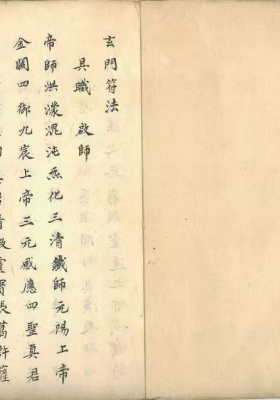 玄門符法
具職 啟師
帝師洪濛混沌炁化三清鐵師元陽上帝
金闕四御九宸上帝三元感應四聖真君
靈寶張葛許薩